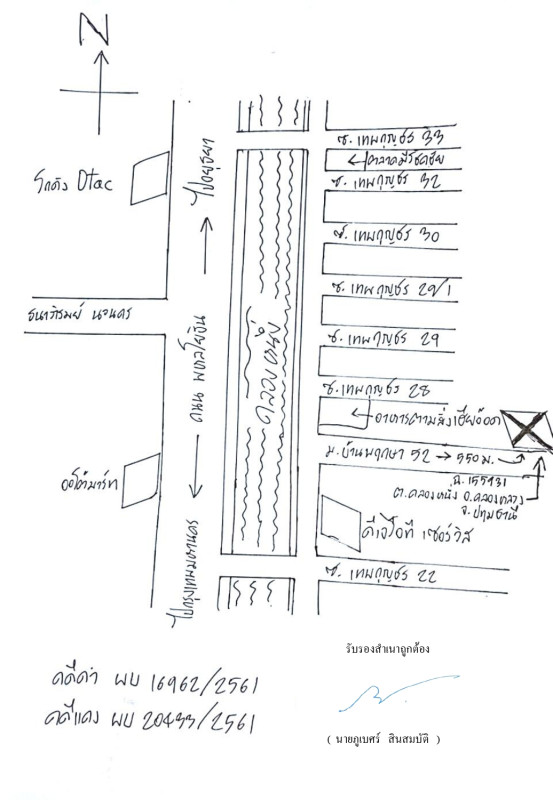 N
ซ. เทพกุญชร 33
ตลาดมีโชคชัย
ซ. เทพกุญชร 32
โกดัง Dtac
ไปอยุธยา
ซ. เทพกุญชร 30
ซ. เทพกุญชร 29/1
ธนาภิรมย์ นวนคร
ถนน พหลโยธิน
คลองหนึ่ง
ซ. เทพกุญชร 29
ซ. เทพกุญชร 28
อาหารตามสั่งเฮีย
ม. บ้านพฤกษา 52 → 550 ม.
ฉ. 155931
ต. คลองหนึ่ง อ. คลองหลวง
จ. ปทุมธานี
ออโต้มาร์ท
ดีเจไอที เซอร์วิส
ไปกรุงเทพมหานคร
ซ. เทพกุญชร 22
รับรองสำเนาถูกต้อง
คดีดำ ผบ 16962/2561
คดีแดง ผบ 20433/2561
( นายภูเบศร์ สินสมบัติ )